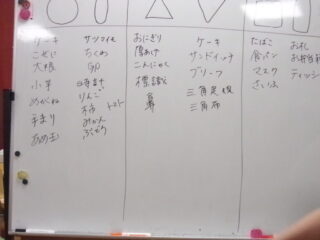 ケーキ
こぜに
大根
めがね
あめ玉
サツマイモ
ちくわ
時計
りんご
柿
トマト
みかん
ぶどう
おにぎり
厚あげ
こんにゃく
標識
ケーキ
サンドイッチ
ブリーフ
三角定規
三角布
たばこ
食パン
マスク
さいふ
お札
お弁当箱
ティッシ